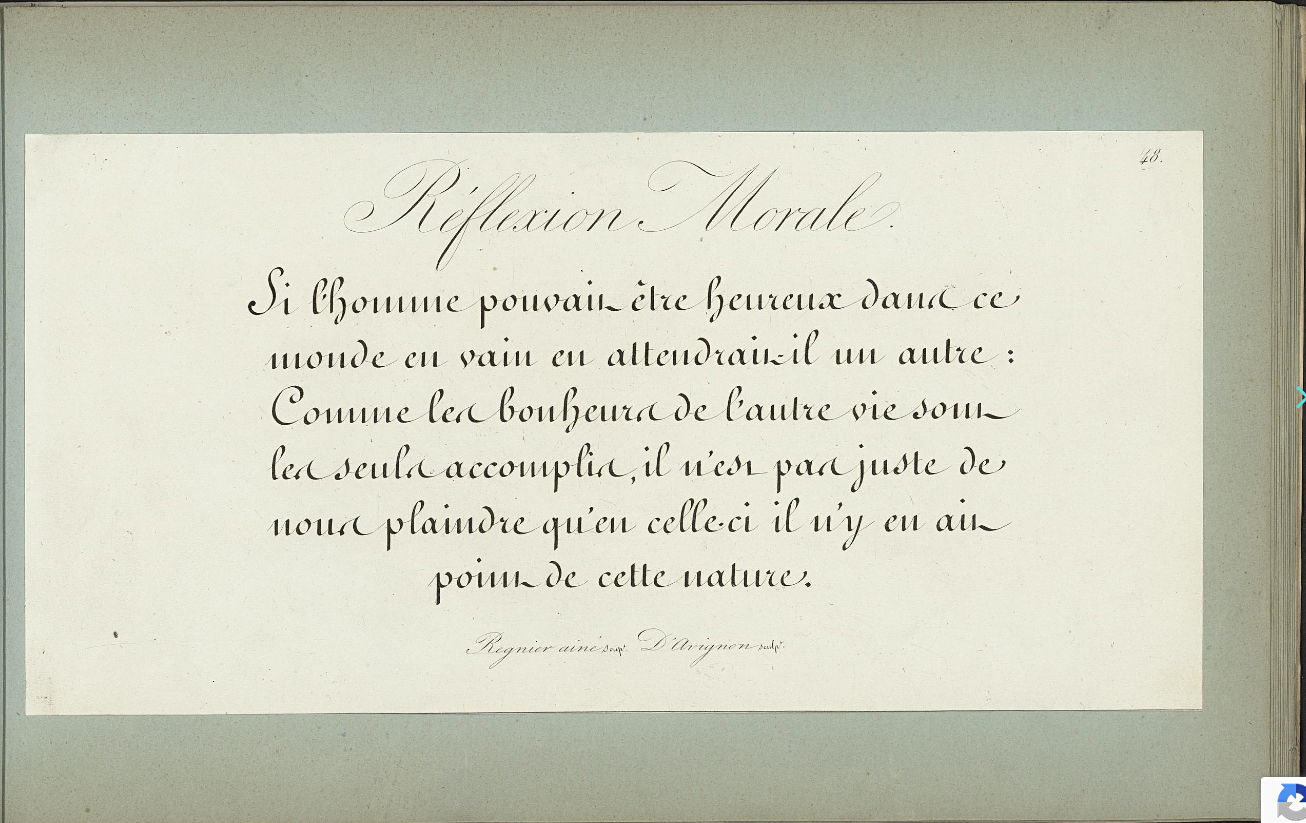 48.
Réflexion Morale.
Si l'homme pouvait être heureux dans ce
monde en vain en attendrait-il un autre :
Comme les bonheurs de l'autre vie sont
les seuls accomplis, il n'est pas juste de
nous plaindre qu'en celle-ci il n'y en ait
point de cette nature.
Regnier ainé scrip.t D'Avignon sculp.t